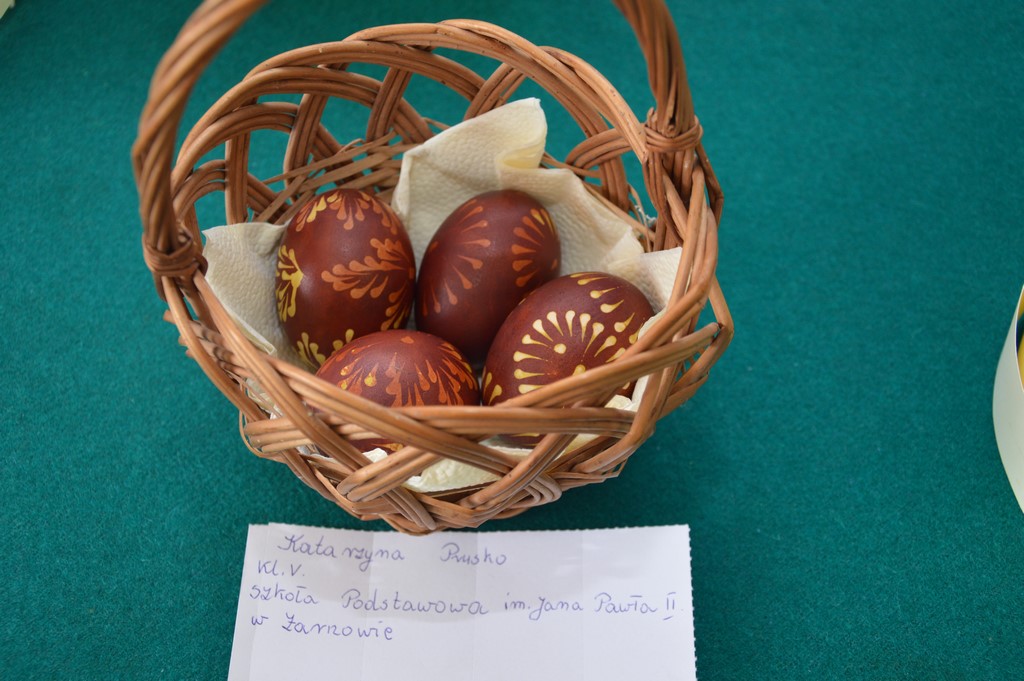 Katarzyna Rusko
Kl. V.
Szkoła Podstawowa im. Jana Pawła II
w Żarnowie